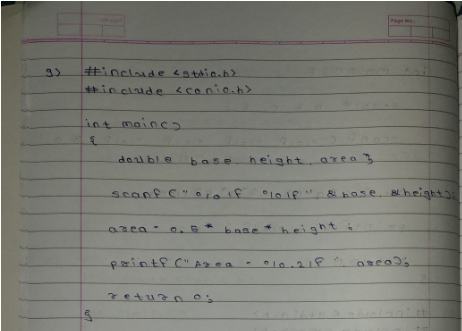 Page No.:
9) #include <stdio.h>
#include <conio.h>
int main()
{
double base, height, area;
scanf ("%lf %lf", &base, &height);
area = 0.5 * base * height;
printf ("Area = %.2lf", area);
return 0;
}